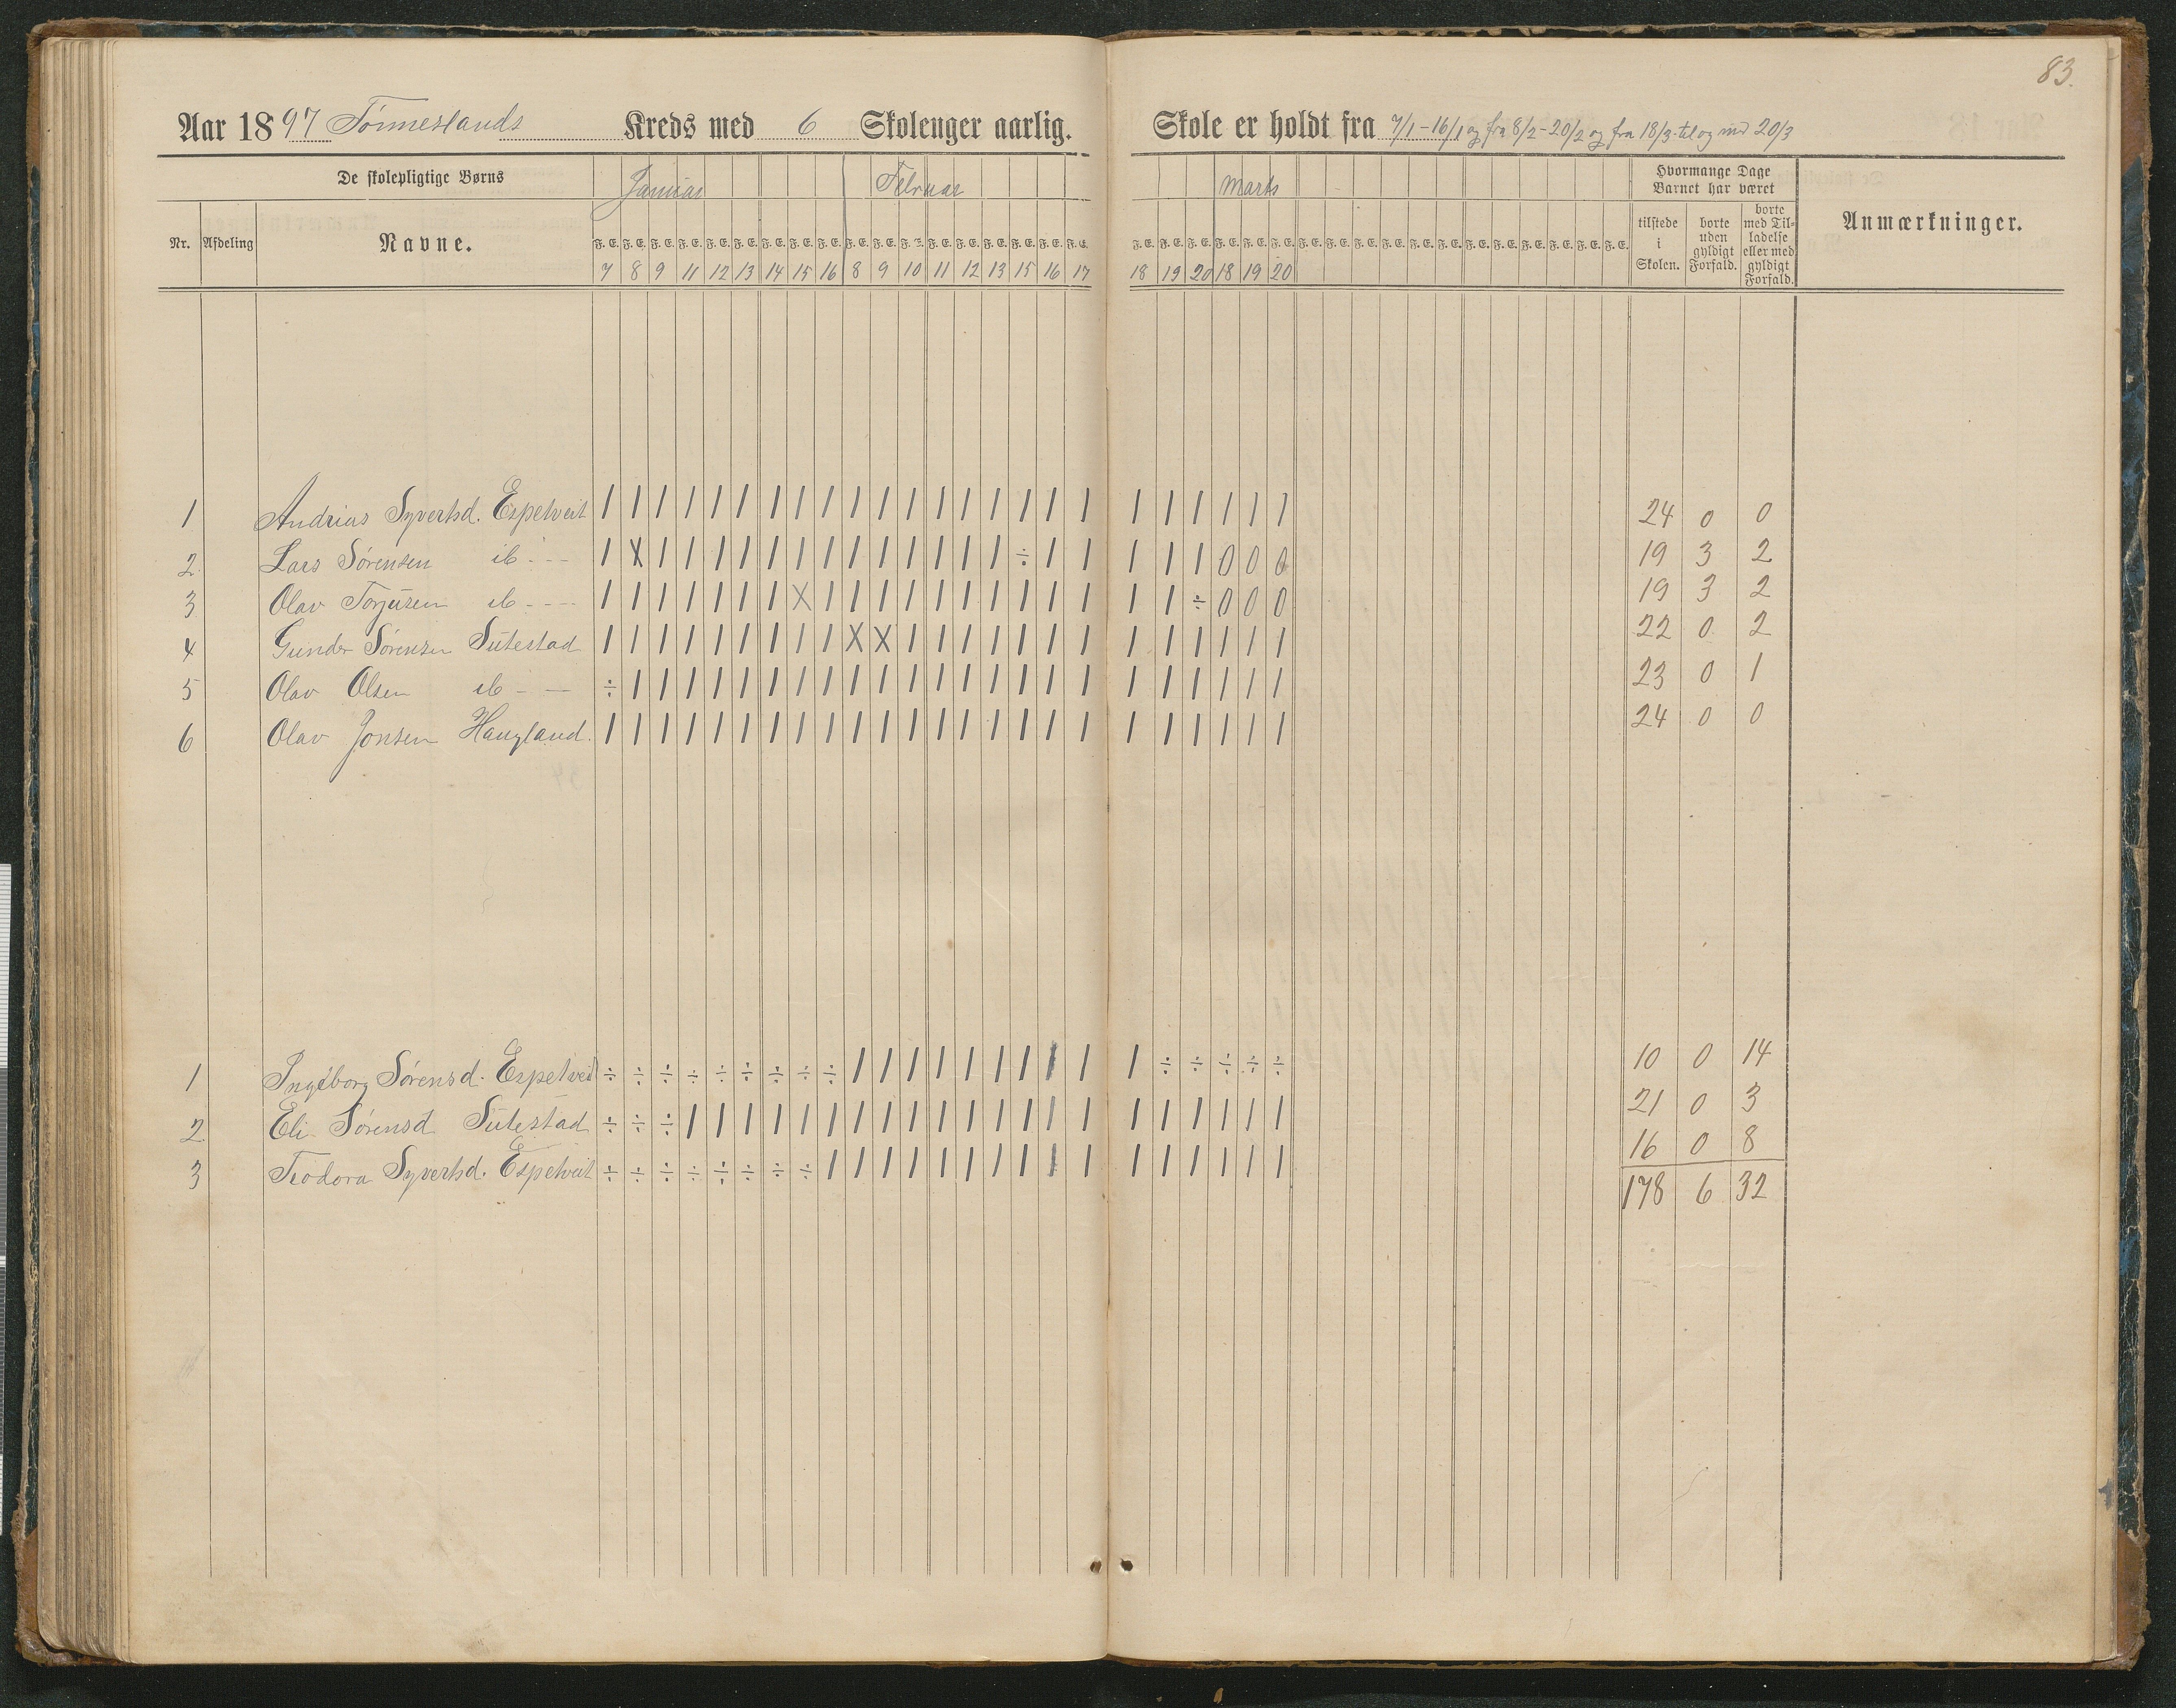 83.
Aar 1897 Tønneslands Kreds med 6 Skoleuger aarlig. Skole er holdt fra 7/1-16/1 og fra 8/2-20/2 og fra 18/3 til og med 20/3
De skolepligtige Børns Januar Februar Marts Hvormange Dage Barnet har været Anmærkninger.
Nr. Afdeling Navne. F. E. F. E. F. E. F. E. F. E. F. E. F. E. F. E. F. E. F. E. F. E. F. E. F. E. F. E. F. E. F. E. F. E. F. E. F. E. F. E. F. E. F. E. F. E. F. E. F. E. F. E. F. E. F. E. F. E. F. E. F. E. F. E. F. E. F. E. F. E. F. E. tilstede i Skolen. borte uden gyldigt Forfald. borte med Tilladelse eller med gyldigt Forfald.
7 8 9 11 12 13 14 15 16 8 9 10 11 12 13 15 16 17 18 19 20 18 19 20
1 Andrias Syvertsd. Espetveit | | | | | | | | | | | | | | | | | | | | | | | | 24 0 0
2. Lars Sørensen ib - - - | X | | | | | | | | | | | | | ÷ | | | | | 0 0 0 19 3 2
3 Olav Torjusen ib - - - | | | | | | | X | | | | | | | | | | | | ÷ 0 0 0 19 3 2
4 Gunder Sørensen Sutestad | | | | | | | | | X X | | | | | | | | | | | | | 22 0 2
5 Olav Olsen ib - - ÷ | | | | | | | | | | | | | | | | | | | | | | | 23 0 1
6 Olav Jonsen Haugland. | | | | | | | | | | | | | | | | | | | | | | | | 24 0 0
1 Ingeborg Sørensd. Espetveit ÷ ÷ ÷ ÷ ÷ ÷ ÷ ÷ ÷ | | | | | | | | | | ÷ ÷ ÷ ÷ ÷ 10 0 14
2. Eli Sørensd. Sutestad ÷ ÷ ÷ | | | | | | | | | | | | | | | | | | | | | 21 0 3
3 Teodora Syvertsd. Espetveit ÷ ÷ ÷ ÷ ÷ ÷ ÷ ÷ | | | | | | | | | | | | | | | | 16 0 8
178 6 32